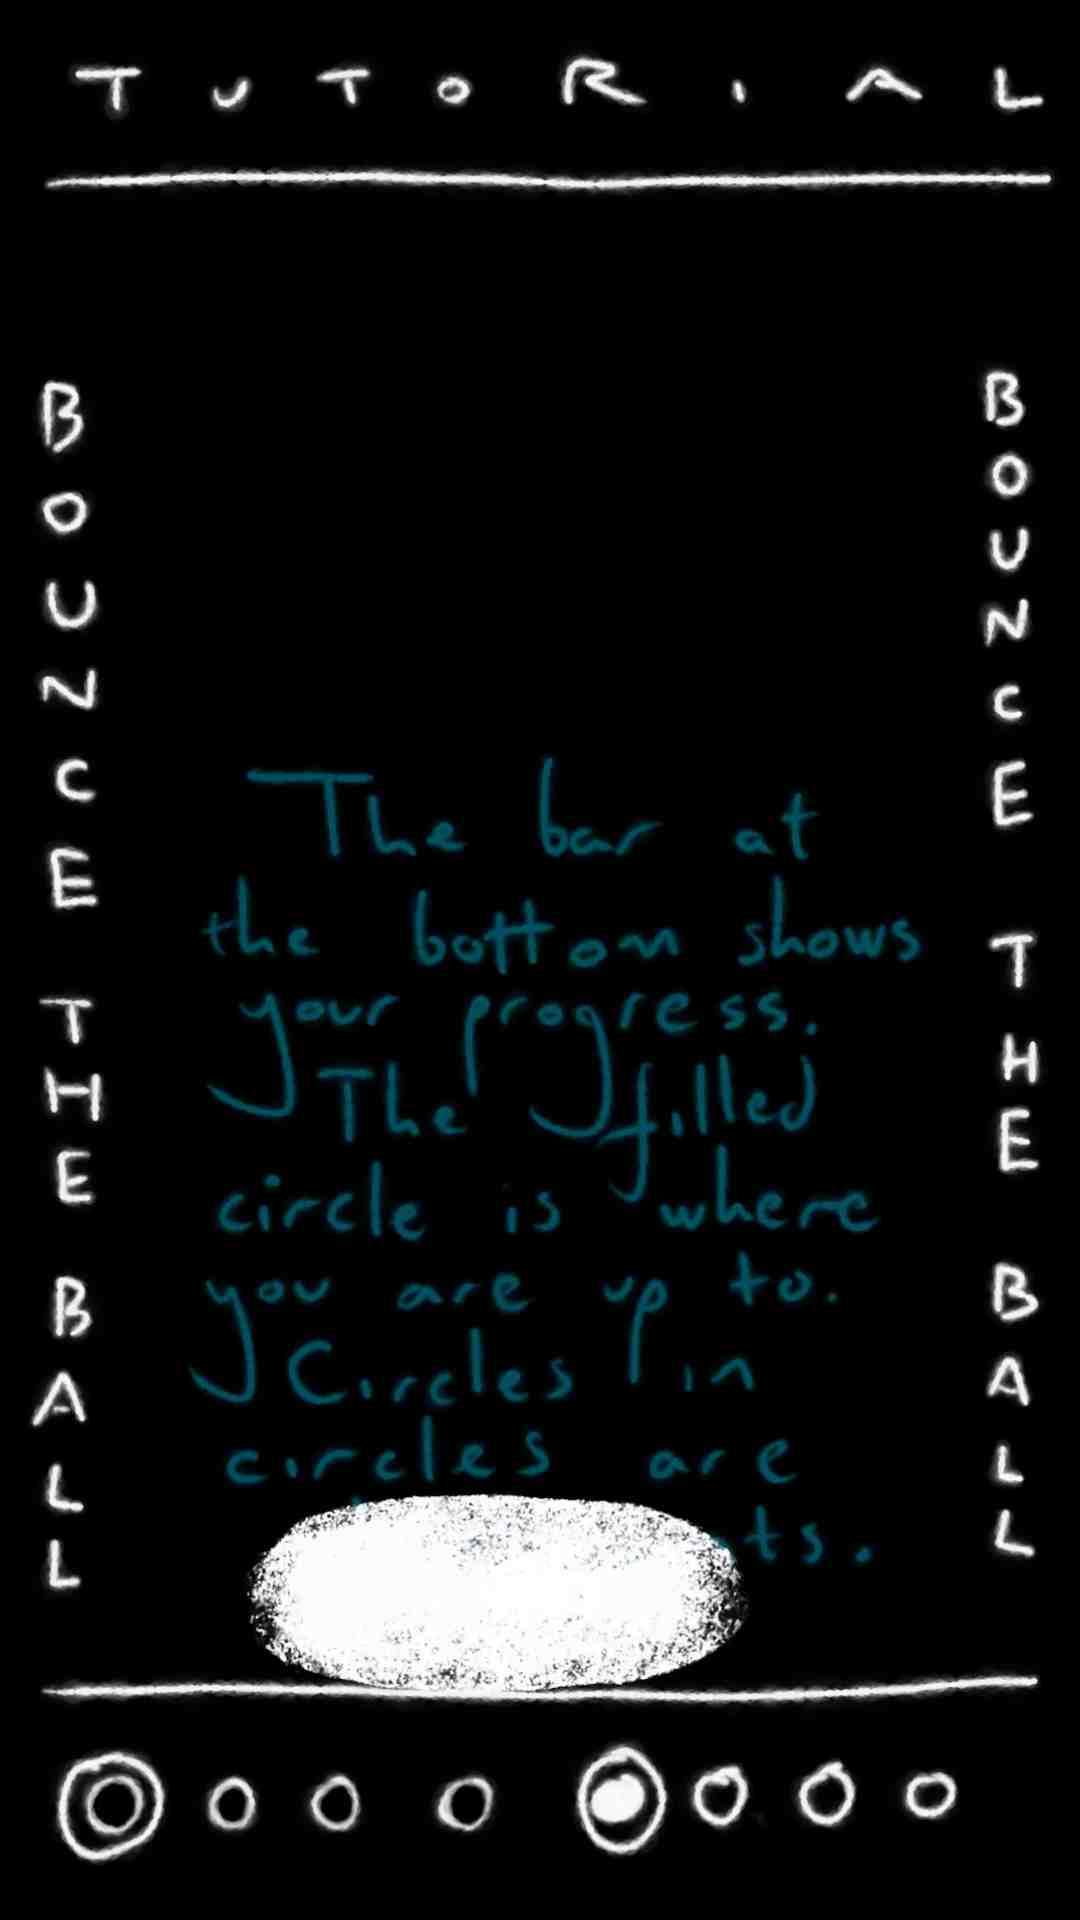 TUTORIAL
BOUNCE THE BALL
The bar at
the bottom shows
your progress.
The filled
circle is where
you are up to.
Circles in
circles are
BOUNCE THE BALL